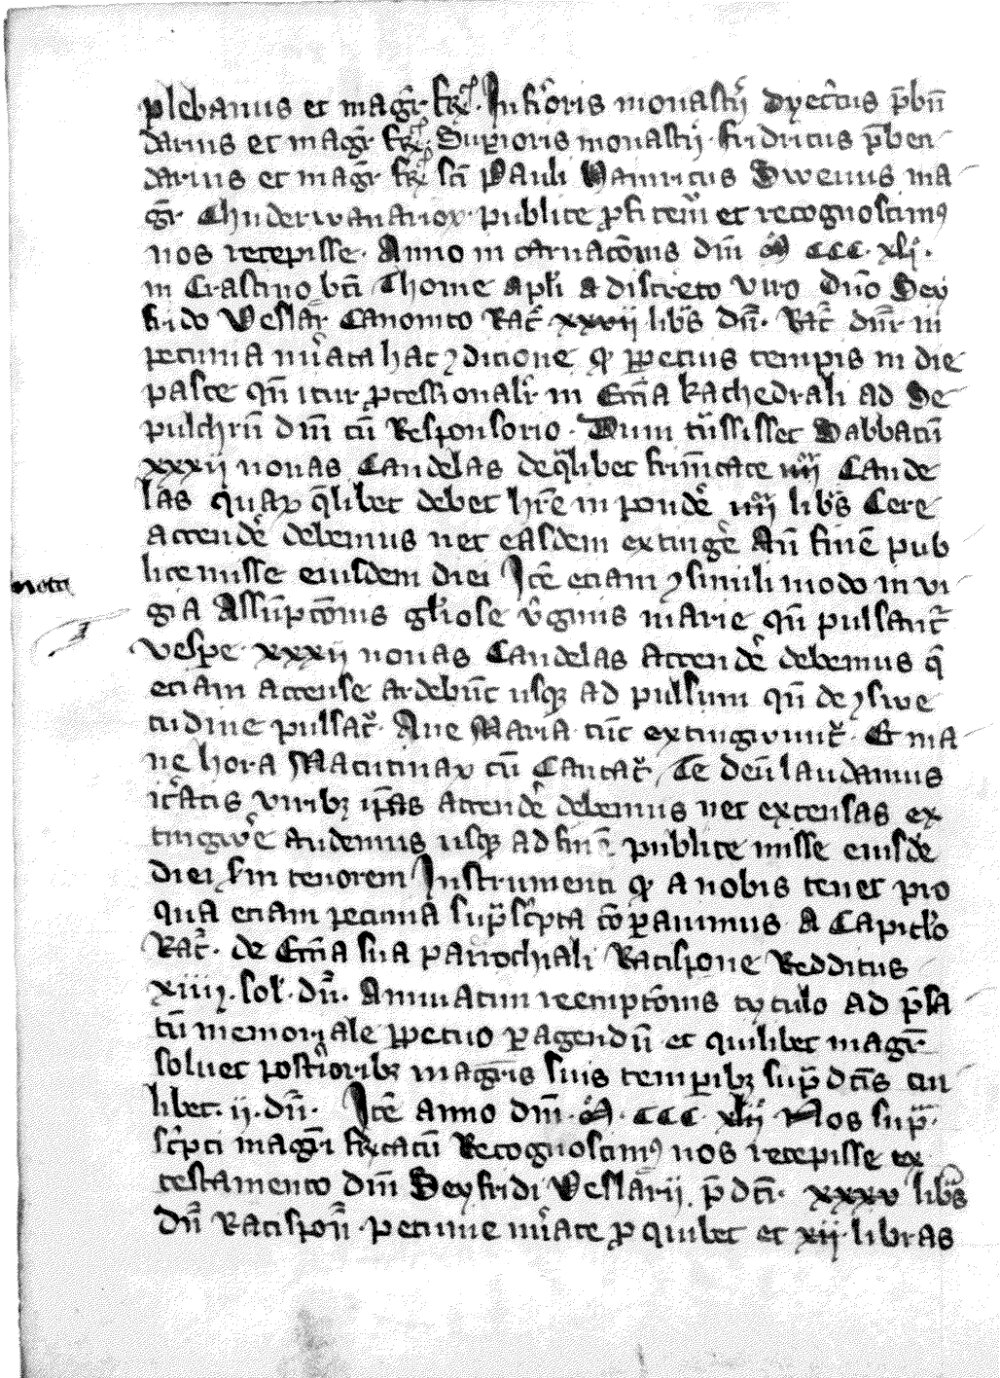 plebanus et mag̅r. fr̅m. Inferioris monasterij dyectus p̅bn̅
darius et mag̅r fr̅m Superioris monasterij. fridricus p̅ben
darius et mag̅r fr̅m sc̅i Pauli Hainricus Swevus ma
g̅r. Chunderwanariorꝝ. publice ꝓfitemur et recognoscimꝰ
nos recepisse. Anno incarnac̅onis dn̅i M̊ CCC. xli.
in Crastino bt̅i Thome apl̅i a discreto viro dn̅o Sey
frido Veslar̅ Canonico Rat̅ xxvij libr̅ dn̅. Rat̅ dn̅r in
pecunia nu̅ata hac ꝯdicione qꝫ ꝑpetuis tempis in die
pasce qn̅ itur ꝓcessionalr̅ in Ecc̅ia kathedrali ad Se
pulchru̅ dn̅i cu̅ Responsorio. Dum t̅nsisset Sabbatu̅
xxxij novas Candelas de q̅libet frat̅nitate iiij Cande
las quarꝝ q̅libet debet h̅re in ponde̅ iiij libr̅s Cere
accende̅ debemus nec easdem extinge̅ An̅ fine̅ pub
lice misse eiusdem diei Ite̅ etiam ꝯsimili modo in vi
gia Assu̅pc̅onis gl̅iose v̅ginis marie qn̅ pulsant̅
note
vespe. xxxij novas Candelas accende̅ debemus q̅
etiam accense ardebu̅t usqꝫ ad pulsum qn̅ de ꝯswe
tudine pulsat̅. Ave Maria tu̅c extingwunt̅. Et ma
ne hora Matutinaꝝ cu̅ Cantat̅ Te deu̅ laudamus
it̅atis viribꝫ ip̅as accende̅ debemus nec extensas ex
tingwe̅ audemus usqꝫ ad fine̅ publice misse eiusde̅
diei s̅m tenorem Instrumenti qꝫ a nobis tenet pro
qua etiam pecunia sup̅sc̅pta co̅ꝑavimus a Capitl̅o
Rat̅. de Ecc̅ia sua parrochiali Ratispone Redditus
xiiij. sol̅. dn̅. Annuatim reempc̅onis tytulo ad p̅fa
tu̅ memoriale ꝑpetuo ꝑagendu̅ et quilibet magr̅
solvet post̅ioribꝫ magr̅is suis temꝑibꝫ sup̅dc̅is cui
libet. ij. dn̅. Ite̅ anno dn̅i. M̊. CCC. xlij Nos sup̅
sc̅pti magr̅i fr̅nitatu̅ Recognoscimꝰ nos recepisse ex
testamento dn̅i Seyfridi Veslarij. p̅dc̅i. xxxv libr̅s
dn̅ Ratispon̅. pecunie nu̅ate ꝓ quibet et xij libras